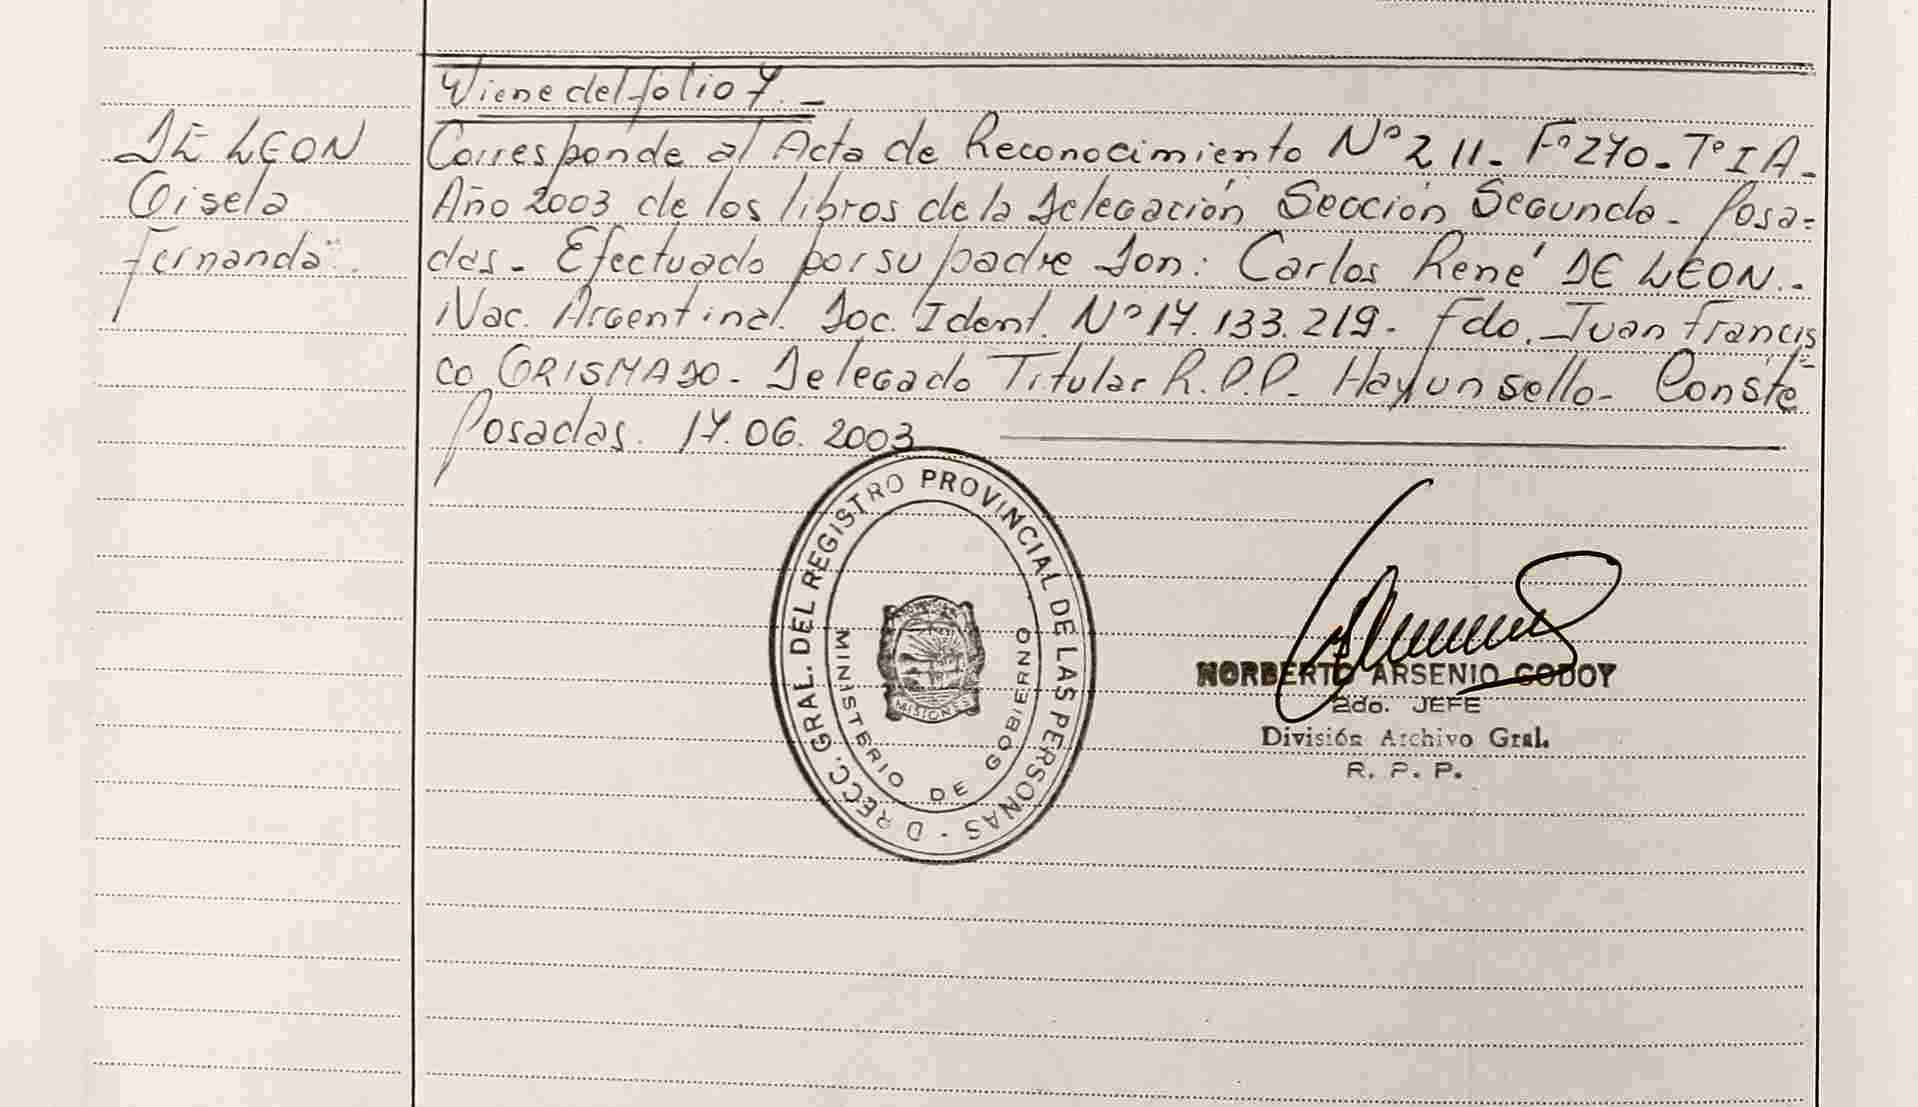 Viene del folio 7.-
DE LEON
Gisela
Fernanda.
Corresponde al Acta de Reconocimiento Nº 211. Fº 270. Tº I A.
Año 2003 de los libros de la Delegación Sección Segunda. Posa=
das. Efectuado por su padre Don: Carlos René DE LEON.
Nac. Argentina. Doc. Ident. Nº 17.133.219. Fdo. Juan Francis
co GRISMADO. Delegado Titular R.P.P. Hay un sello. Conste
Posadas. 17.06.2003
D RECC. GRAL. DEL REGISTRO PROVINCIAL DE LAS PERSONAS -
MINISTERIO DE GOBIERNO
MISIONES
NORBERTO ARSENIO GODOY
2do. JEFE
División Archivo Gral.
R. P. P.